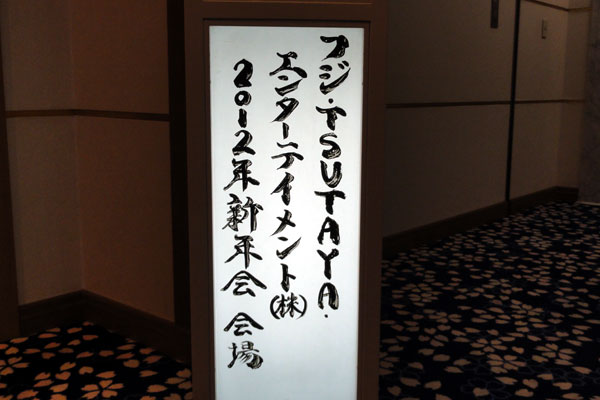 フジ・TSUTAYA・
エンターテイメント(株)
2012年新年会 会場